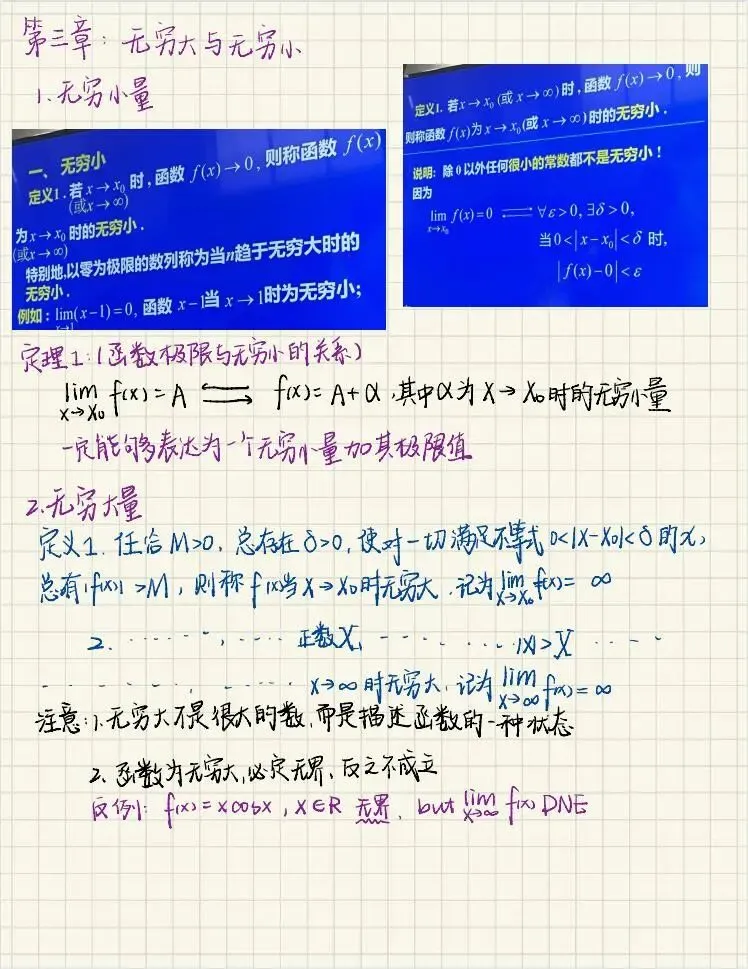 第三章：无穷大与无穷小
1.无穷小量
一、无穷小
定义1．若 x→x₀ 时，函数 f(x)→0，则称函数 f(x)
(或x→∞)
为 x→x₀ 时的无穷小．
(或x→∞)
特别地，以零为极限的数列称为当n趋于无穷大时的
无穷小．
例如：lim(x−1)=0, 函数 x−1当 x→1时为无穷小；
x→1
定义1. 若x→x₀(或 x→∞)时，函数 f(x)→0，则
则称函数 f(x)为 x→x₀(或 x→∞)时的无穷小．
说明：除 0 以外任何很小的常数都不是无穷小！
因为
lim f(x)=0 ⇌ ∀ε>0, ∃δ>0,
x→x₀
当0<|x−x₀|<δ 时,
|f(x)−0|<ε
定理1:（函数极限与无穷小的关系）
lim f(x)=A ⇌ f(x)=A+α ,其中α为X→X₀时的无穷小量
x→x₀
一定能够多表达为一个无穷小量加其极限值
2.无穷大量
定义1. 任给 M>0, 总存在 δ>0, 使对一切满足不等式 0<|X-X₀|<δ 的x,
总有|f(x)|>M, 则称 f(x)当X→X₀时无穷大,记为lim f(x)= ∞
X→X₀
2. ······, ···· 正数X, ······ |x|>X ····
········, ····· X→∞时无穷大,记为 lim f(x)=∞
X→∞
注意:1.无穷大不是很大的数,而是描述函数的一种状态
2.函数为无穷大,必定无界,反之不成立
反例: f(x)=xcosx, X∈R 无界, but lim f(x) DNE
x→∞